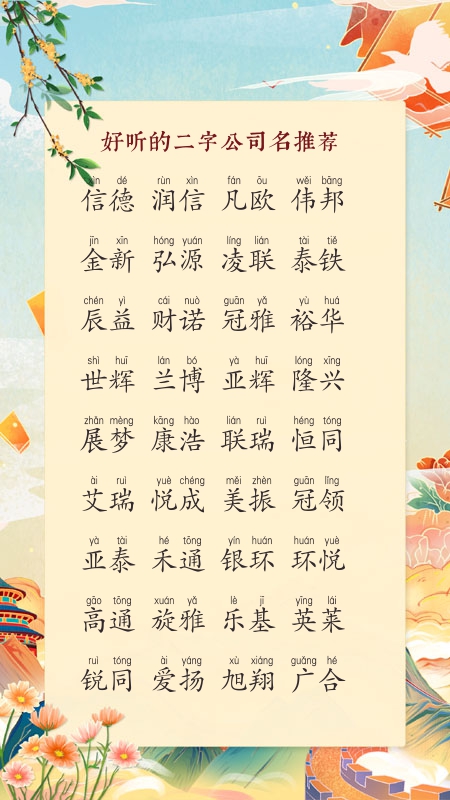 好听的二字公司名推荐
xìn dé rùn xìn fán ōu wěi bāng
信德 润信 凡欧 伟邦
jīn xīn hóng yuán líng lián tài tiě
金新 弘源 凌联 泰铁
chén yì cái nuò guān yǎ yù huá
辰益 财诺 冠雅 裕华
shì huī lán bó yà huī lóng xīng
世辉 兰博 亚辉 隆兴
zhǎn mèng kāng hào lián ruì héng tóng
展梦 康浩 联瑞 恒同
ài ruì yuè chéng měi zhèn guān lǐng
艾瑞 悦成 美振 冠领
yà tài hé tōng yín huán huán yuè
亚泰 禾通 银环 环悦
gāo tōng xuán yǎ lè jī yīng lái
高通 旋雅 乐基 英莱
ruì tóng ài yáng xù xiáng guǎng hé
锐同 爱扬 旭翔 广合